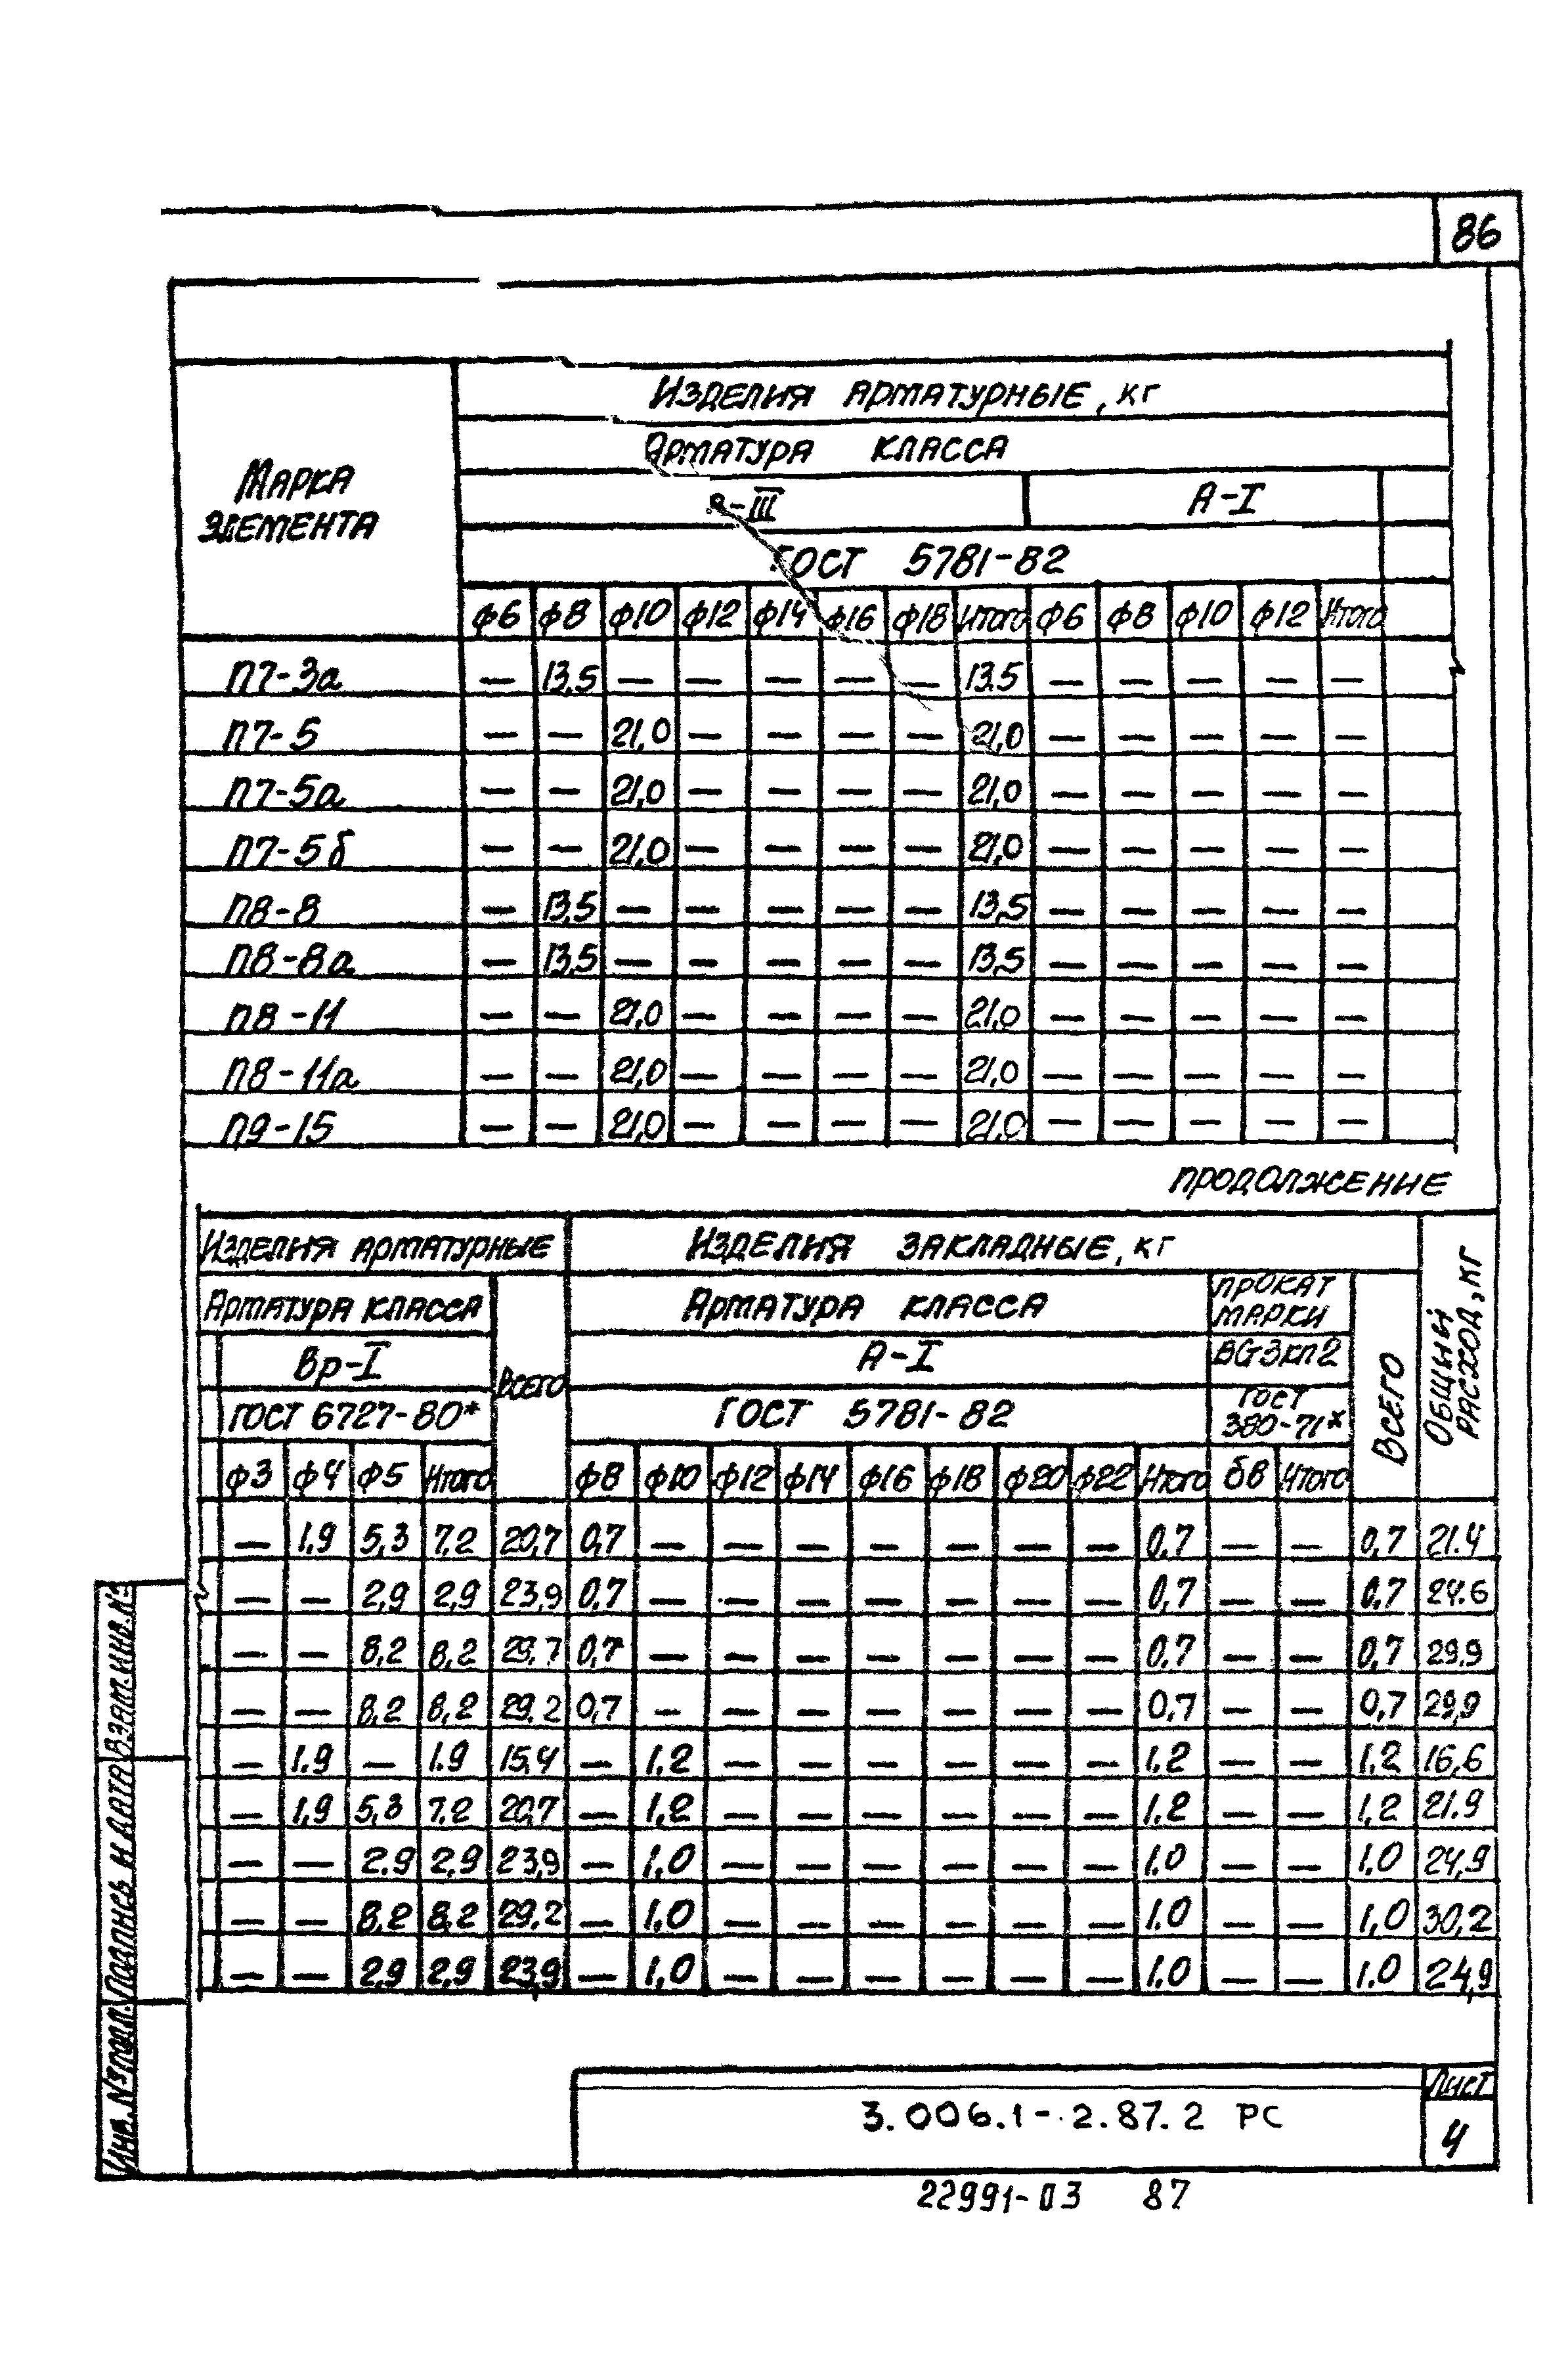 86
Изделия арматурные, кг
Арматура класса
Марка элемента
А-III А-I
ГОСТ 5781-82
ф6 ф8 ф10 ф12 ф14 ф16 ф18 Итого ф6 ф8 ф10 ф12 Итого
П7-3а — 13,5 — — — — — 13.5 — — — — —
П7-5 — — 21,0 — — — — 21,0 — — — — —
П7-5а — — 21,0 — — — — 21,0 — — — — —
П7-5б — — 21,0 — — — — 21,0 — — — — —
П8-8 — 13,5 — — — — — 13,5 — — — — —
П8-8а — 13,5 — — — — — 13,5 — — — — —
П8-11 — — 21,0 — — — — 21,0 — — — — —
П8-11а — — 21,0 — — — — 21,0 — — — — —
П9-15 — — 21,0 — — — — 21,0 — — — — —
продолжение
Изделия арматурные Изделия закладные, кг Общий расход, кг
Арматура класса Всего Арматура класса Прокат марки Всего
Вр-I А-I ВСт3кп2
ГОСТ 6727-80* ГОСТ 5781-82 ГОСТ 380-71*
ф3 ф4 ф5 Итого ф8 ф10 ф12 ф14 ф16 ф18 ф20 ф22 Итого Итого
— 1.9 5,3 7,2 20,7 0,7 — — — — — — — 0,7 — — 0,7 21.4
— — 2,9 2,9 23,9 0,7 — — — — — — — 0,7 — — 0,7 24.6
— — 8,2 8,2 29.7 0,7 — — — — — — — 0,7 — — 0,7 29.9
— — 8,2 8,2 29.2 0,7 — — — — — — — 0,7 — — 0,7 29,9
— 1.9 — 1.9 15,4 — 1.2 — — — — — — 1.2 — — 1.2 16,6
— 1,9 5,3 7.2 20,7 — 1.2 — — — — — — 1.2 — — 1,2 21.9
— — 2.9 2,9 23,9 — 1,0 — — — — — — 1.0 — — 1,0 24,9
— — 8,2 8,2 29,2 — 1,0 — — — — — — 1.0 — — 1,0 30,2
— — 2,9 2,9 23,9 — 1,0 — — — — — — 1.0 — — 1.0 24,9
Взам. инв. №
Подпись и дата
Инв. № подл.
3.006.1-2.87.2 РС
Лист
4
22991-03 87